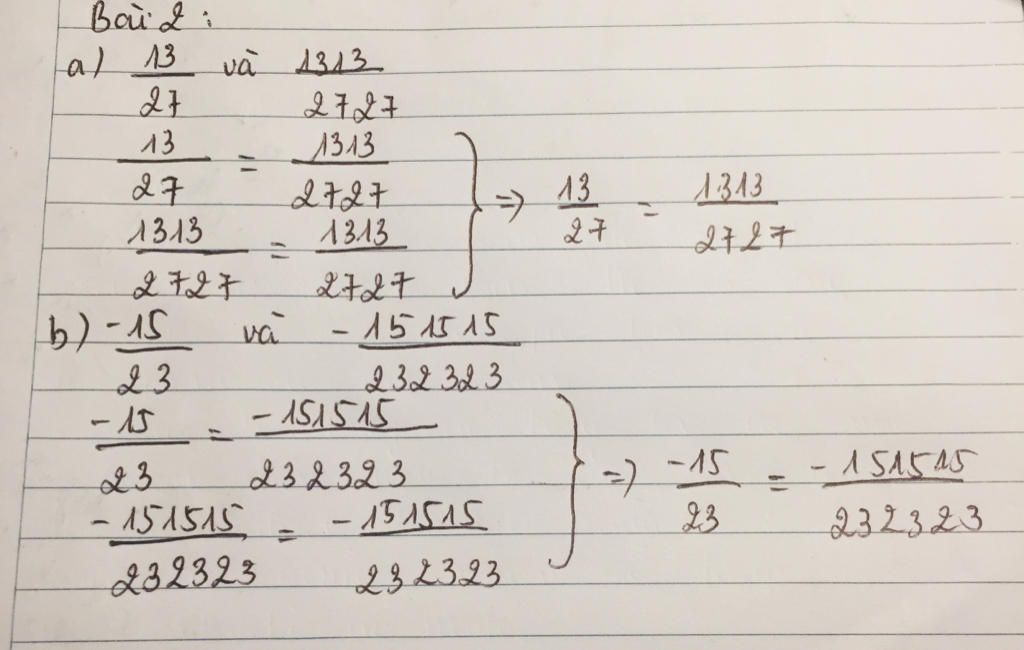 Bài 2 :
a) 13/27 và 1313/2727
13/27 = 1313/2727
1313/2727 = 1313/2727
} => 13/27 = 1313/2727
b) -15/23 và -151515/232323
-15/23 = -151515/232323
-151515/232323 = -151515/232323
} => -15/23 = -151515/232323